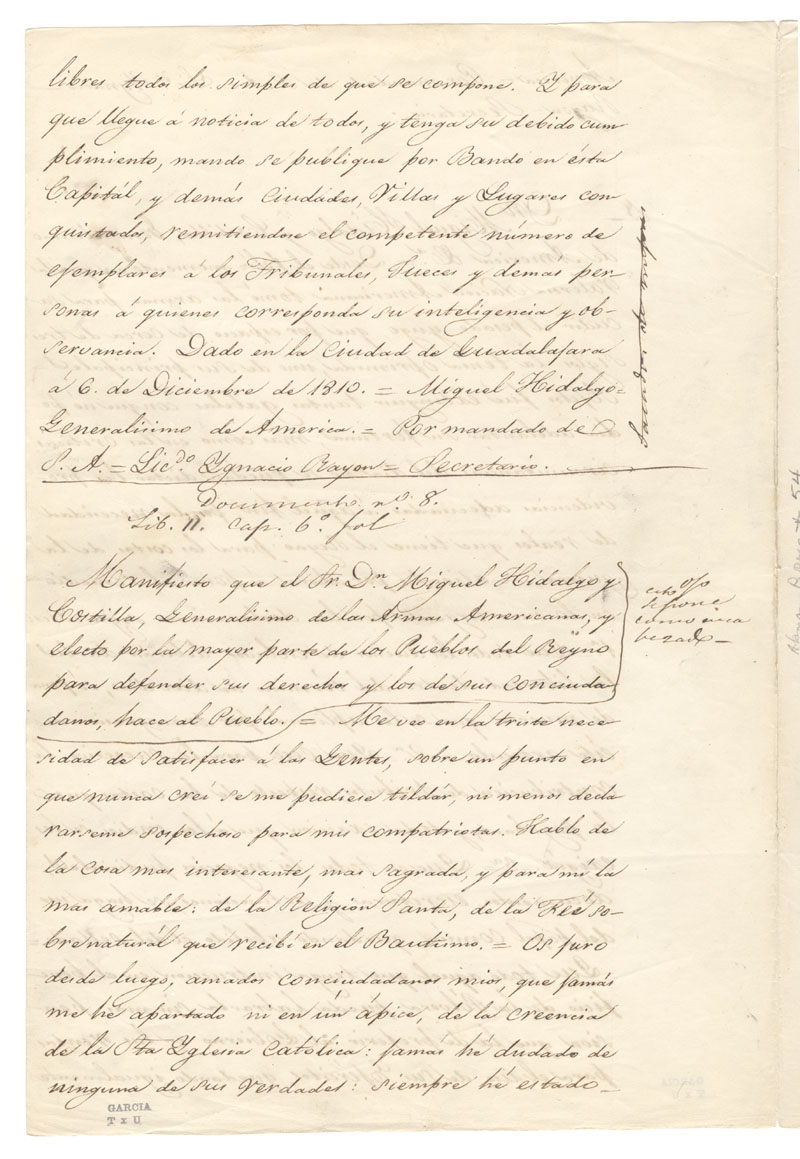 libres todos los simples de que se compone. Y para
que llegue á noticia de todos, y tenga su debido cum-
plimiento, mando se publique por Bando en ésta
Capitál, y demás Ciudádes, Villas y Lugares con-
quistados, remitiendose el competente número de
ejemplares á los Tribunales, Jueces y demás per-
sonas á quienes corresponda su inteligencia y ob-
servancia. Dado en la Ciudad de Guadalajara
á 6. de Diciembre de 1810. = Miguel Hidalgo=
Generalisimo de America. = Por mandado de
S. A. = Lic.do Ygnacio Rayon = Secretario.
Documento n.o 8.
Lib. 11. Cap. 6.o fol
Manifiesto que el Sr. Dn. Miguel Hidalgo y
Costilla, Generalisimo de las Armas Americanas, y
electo por la mayor parte de los Pueblos del Reyno
para defender sus derechos y los de sus conciuda-
danos, hace al Pueblo. = Me veo en la triste nece-
sidad de satisfacer á las Gentes, sobre un punto en
que nunca creí se me pudiese tildár, ni menos decla-
rarseme sospechoso para mis compatriotas. Hablo de
la cosa mas interesante, mas sagrada, y para mí la
mas amable: de la Religion Santa, de la Feé so-
brenaturál que recibí en el Bautismo. = Os juro
desde luego, amados conciudadanos mios, que jamás
me hé apartado ni en un ápice, de la creencia
de la Sta Yglesia Católica: jamás hé dudado de
ninguna de sus verdades: siempre hé estado
se pone
como enca
bezado
GARCIA
T x U